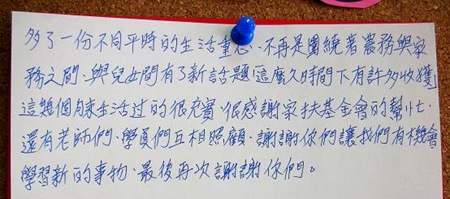 多了一份不同平時的生活重心、不再是圍繞著農務與家
務之間、與兒女間有了新話題!這麼久時間下有許多收獲!
這幾個月來生活过的很充實、很感謝家扶基金會的幫忙、
還有老師們、學員們互相照顧、謝謝你們讓我們有機會
學習新的事物、最後再次謝謝你們。